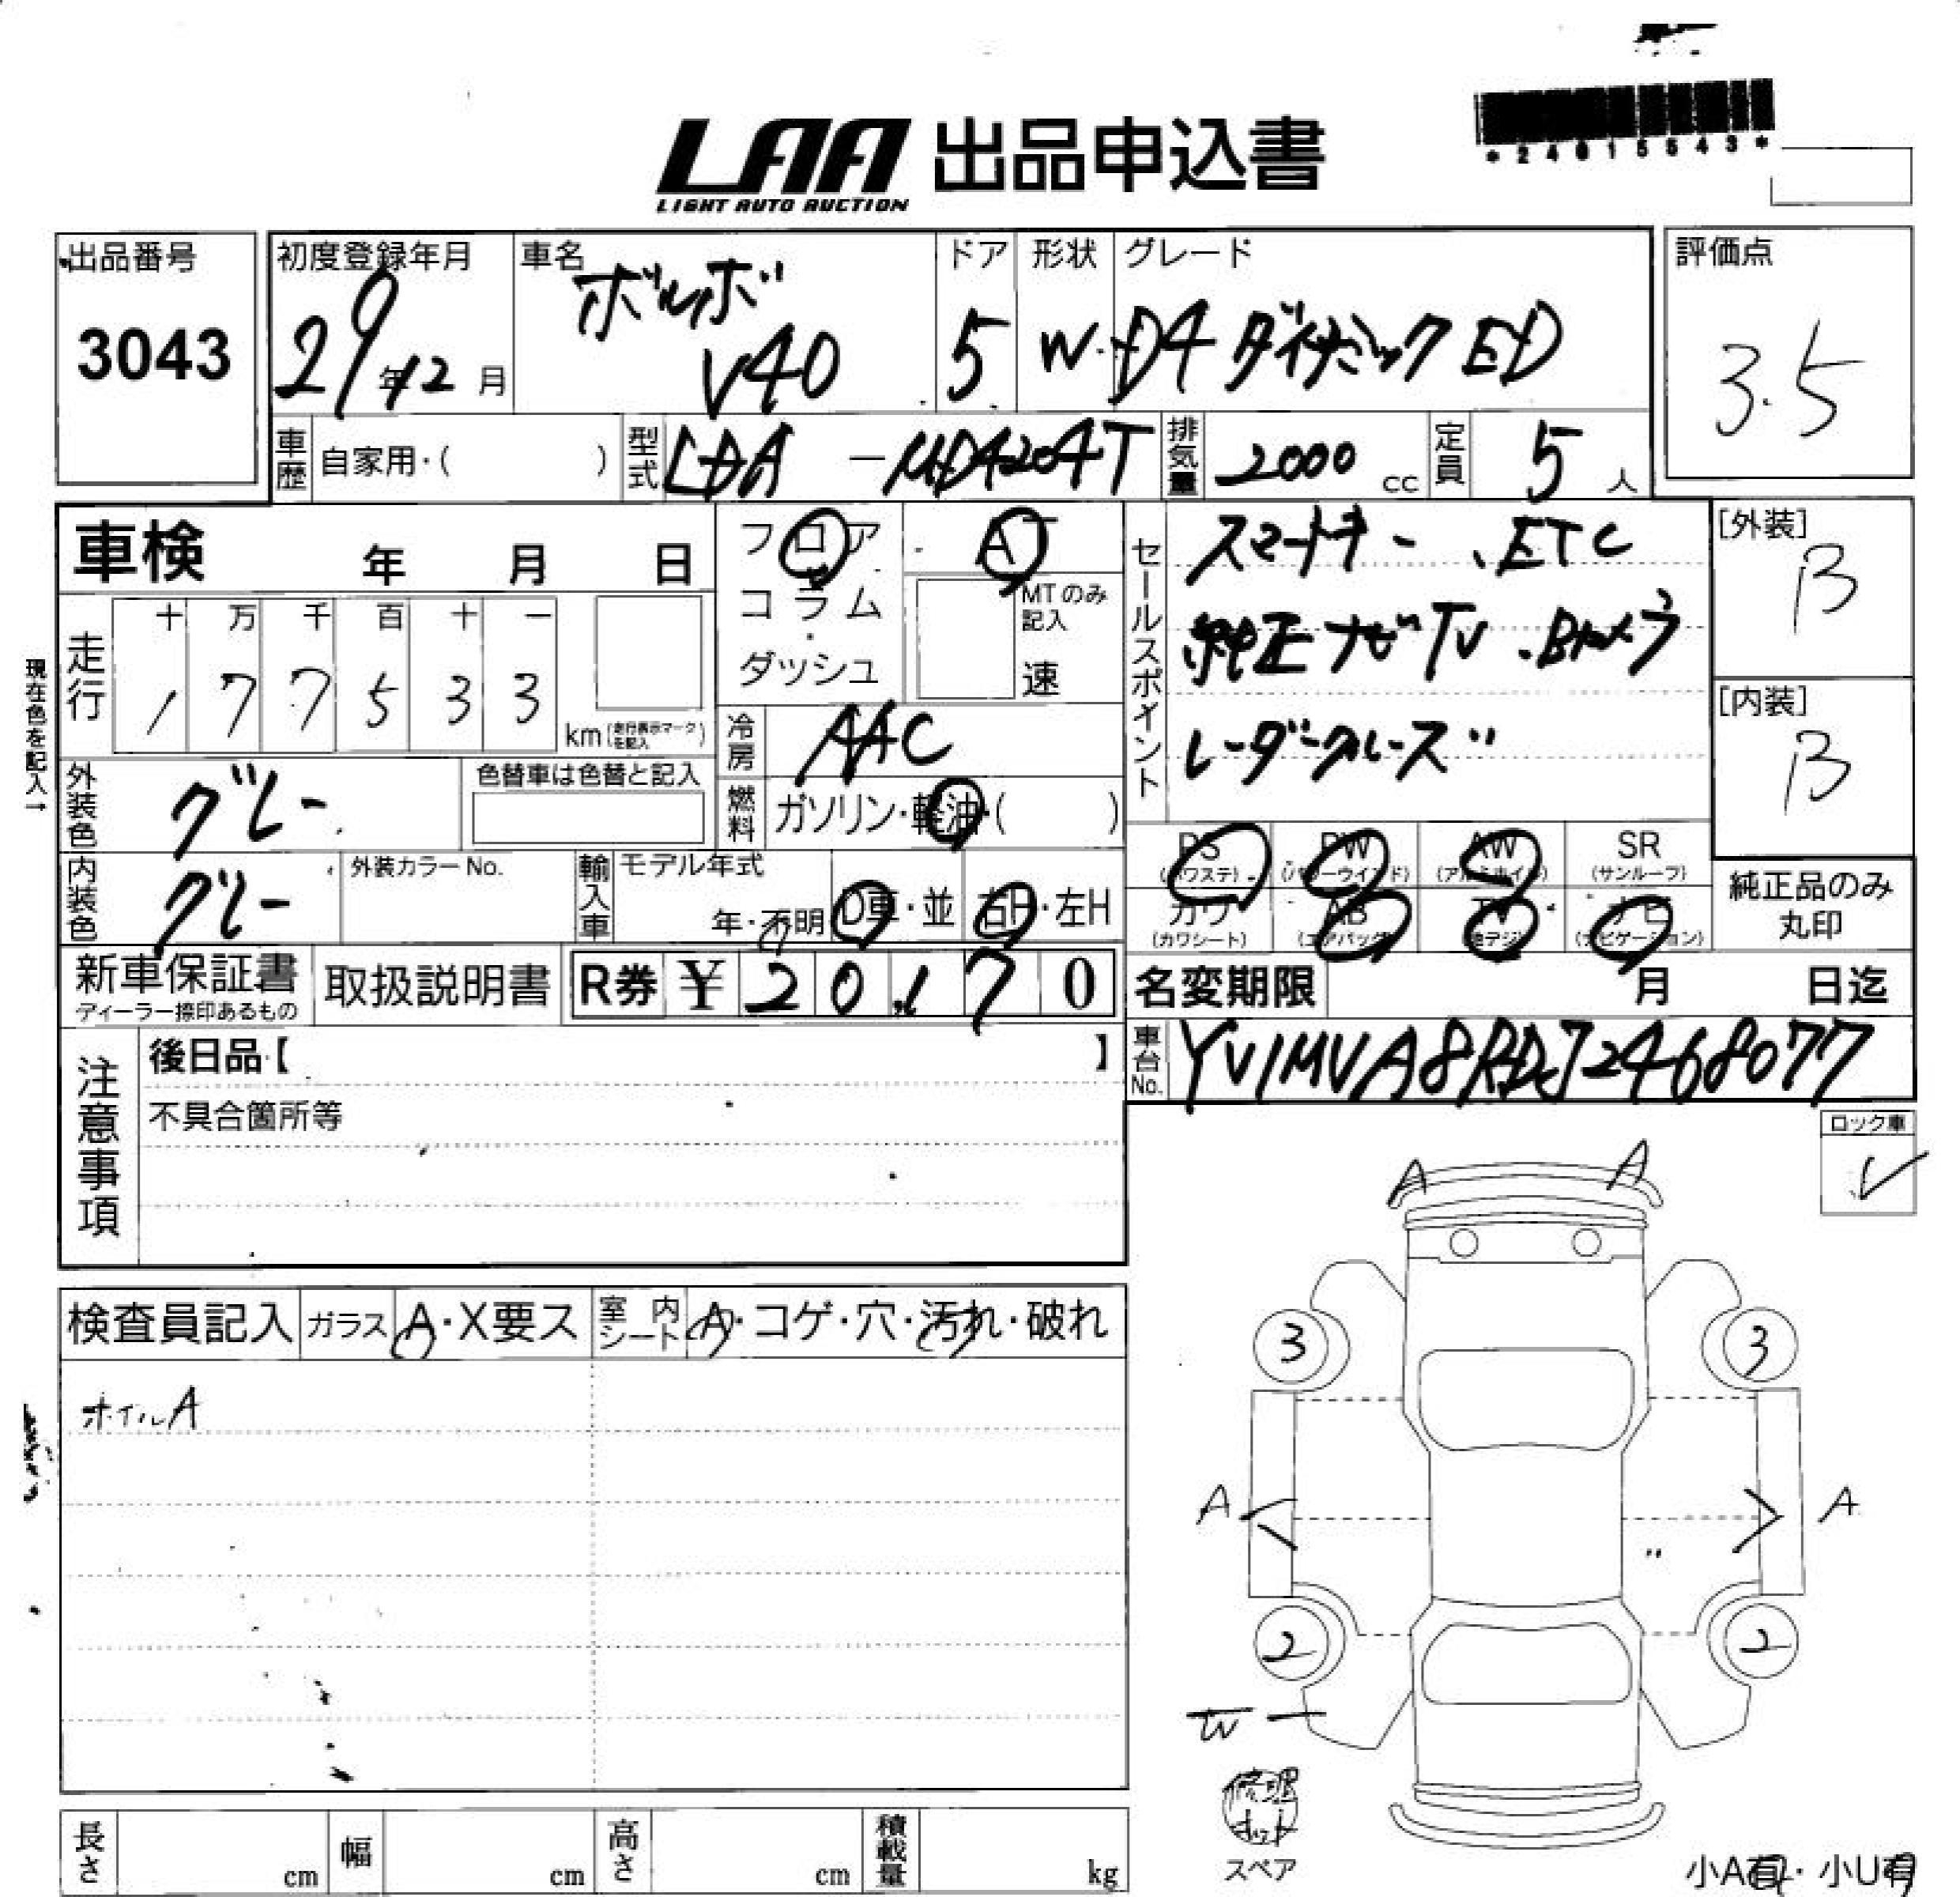 *24015543*
LAA 出品申込書
LIGHT AUTO AUCTION
出品番号
3043
初度登録年月
29年12月
車名
ボルボ
V40
ドア
5
形状
W
グレード
D4 ダイナミック ED
評価点
3.5
車歴 自家用・( )
型式 LDA-MD4204T
排気量 2000 cc
定員 5 人
車検 年 月 日
走行
十 万 千 百 十 一
1 7 7 5 3 3
km(走行表示マークを記入)
現在色を記入→
フロア
コラム
・
ダッシュ
AT
MTのみ記入
速
冷房 AAC
燃料 ガソリン・軽油・( )
外装色 グレー
色替車は色替と記入
内装色 グレー
外装カラーNo.
輸入車
モデル年式
年・不明
D車・並
右H・左H
セールスポイント
スマートキー、ETC
純正ナビTV.Bカメラ
レーダークルーズ
[外装]
B
[内装]
B
PS (パワステ)
PW (パワーウインド)
AW (アルミホイル)
SR (サンルーフ)
カワ (カワシート)
AB (エアバック)
TV (地デジ)
ナビ (ナビゲーション)
純正品のみ
丸印
新車保証書
ディーラー捺印あるもの
取扱説明書
R券 ¥ 20,170
名変期限 月 日迄
車台No. YV1MVA8RDJ2468077
注意事項
後日品【 】
不具合箇所等
ロック車
✓
検査員記入
ガラス A・X要ス
室内シート A・コゲ・穴・汚れ・破れ
ホイルA
A A
3 3
A A
2 2
W
修理キット
スペア
小A有・小U有
長さ cm
幅 cm
高さ cm
積載量 kg